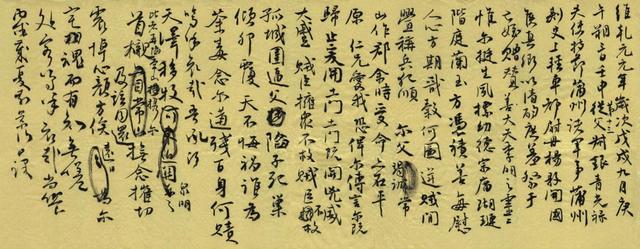 維乾元元年歲次戊戌九月庚
午朔三日壬申第十三從父叔銀青光祿
夫使持節蒲州諸軍事蒲州
刺史上輕車都尉丹楊縣開國
侯真卿以清酌庶羞祭于
亡姪贈贊善大夫季明之靈曰
惟爾挺生夙標幼德宗廟瑚璉
階庭蘭玉方憑積善每慰
人心方期戩穀何圖逆賊間
釁稱兵犯順爾父竭誠常
山作郡余時受命亦在平
原仁兄愛我恐俾爾傳言爾既
歸止爰開土門土門既開凶威
大蹙賊臣擁衆不救賊臣擁不救
孤城圍逼父陷子死巢
傾卵覆天不悔禍誰為
荼毒念爾遘殘百身何贖
嗚呼哀哉吾承
天澤移牧河關泉明
比者再陷常山攜爾
首櫬及茲同還撫念摧切
震悼心顏方俟遠日卜爾
宅魂而有知無嗟
久客嗚呼哀哉尚饗